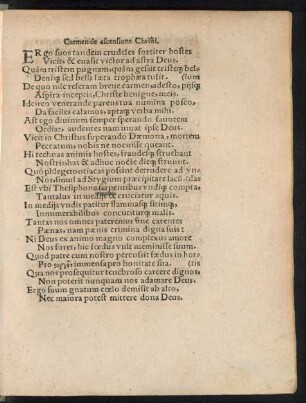 Carmen de ascensione Christi.
ERgo suos tandem crudeles fortiter hostes
Vicit, & euasit victor ad astra Deus.
Quàm tristem pugnam, quàm gessit tristeq́; bel-
Deniq́; sed belli læta trophæa tulit. (lum
De quo nūc referam breue carmen, adesto, pijsq́;
Aspira inceptis, Christe benigne, meis.
Idcirco venerande parens tua numina posco,
Da faciles calamos, aptaq́; verba mihi.
Ast ego diuinum semper sperando fauorem
Ordiar, audentes nam iuuat ipse Deus.
Vicit io Christus superando Dæmona, mortem
Peccatum, nobis ne nocuisse queant.
Hi technas animis hostes, fraudesq́; struebant
Nostris, has & adhuc nocte dieq́; struunt.
Quò phlegetontiacas possint detrudere ad vn-
Nos, simul ad Stygium præcipitare lacū. (das
Est vbi Thesiphone serpentibus vndiq́; compta,
Tantalus in medijs cruciatur aquis.
In medijs vndis patitur flammasq́; sitimq́;
Innumerabilibus concutiturq́; malis.
Tantas nos omnes pateremur sine carentes
Pœnas, nam pœnis crimina digna suis
Ni Deus ex animo magno complexus amore
Nos foret, hic fœdus vult meminisse suum.
Quod patre cum nostro percussit fœdus in hor-
Pro immensa pro bonitate sua. (tis
Qua nos prosequitur tenebroso carcere dignos,
Non poterit nunquam nos adamare Deus.
Ergo suum gnatum cœlo demisit ab alto,
Nec maiora potest mittere dona Deus.